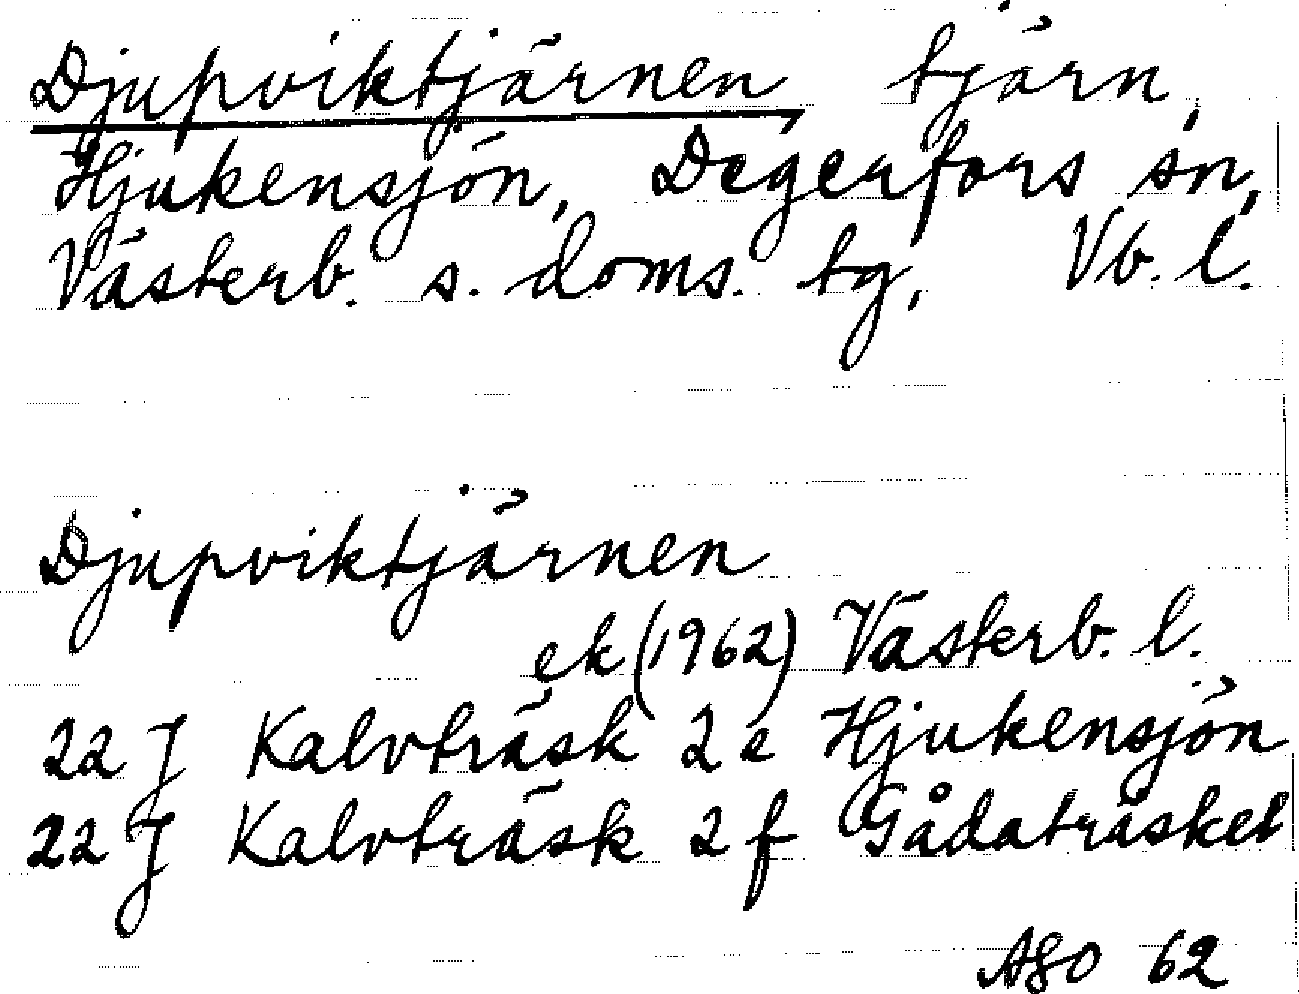 Djupviktjärnen tjärn,
Hjukensjön, Degerfors sn,
Västerb. s. doms. tg, Vb. l.
Djupviktjärnen
ek (1962) Västerb. l.
22 J Kalvträsk 2 e Hjukensjön
22 J Kalvträsk 2 f Gådaträsket
ASO 62